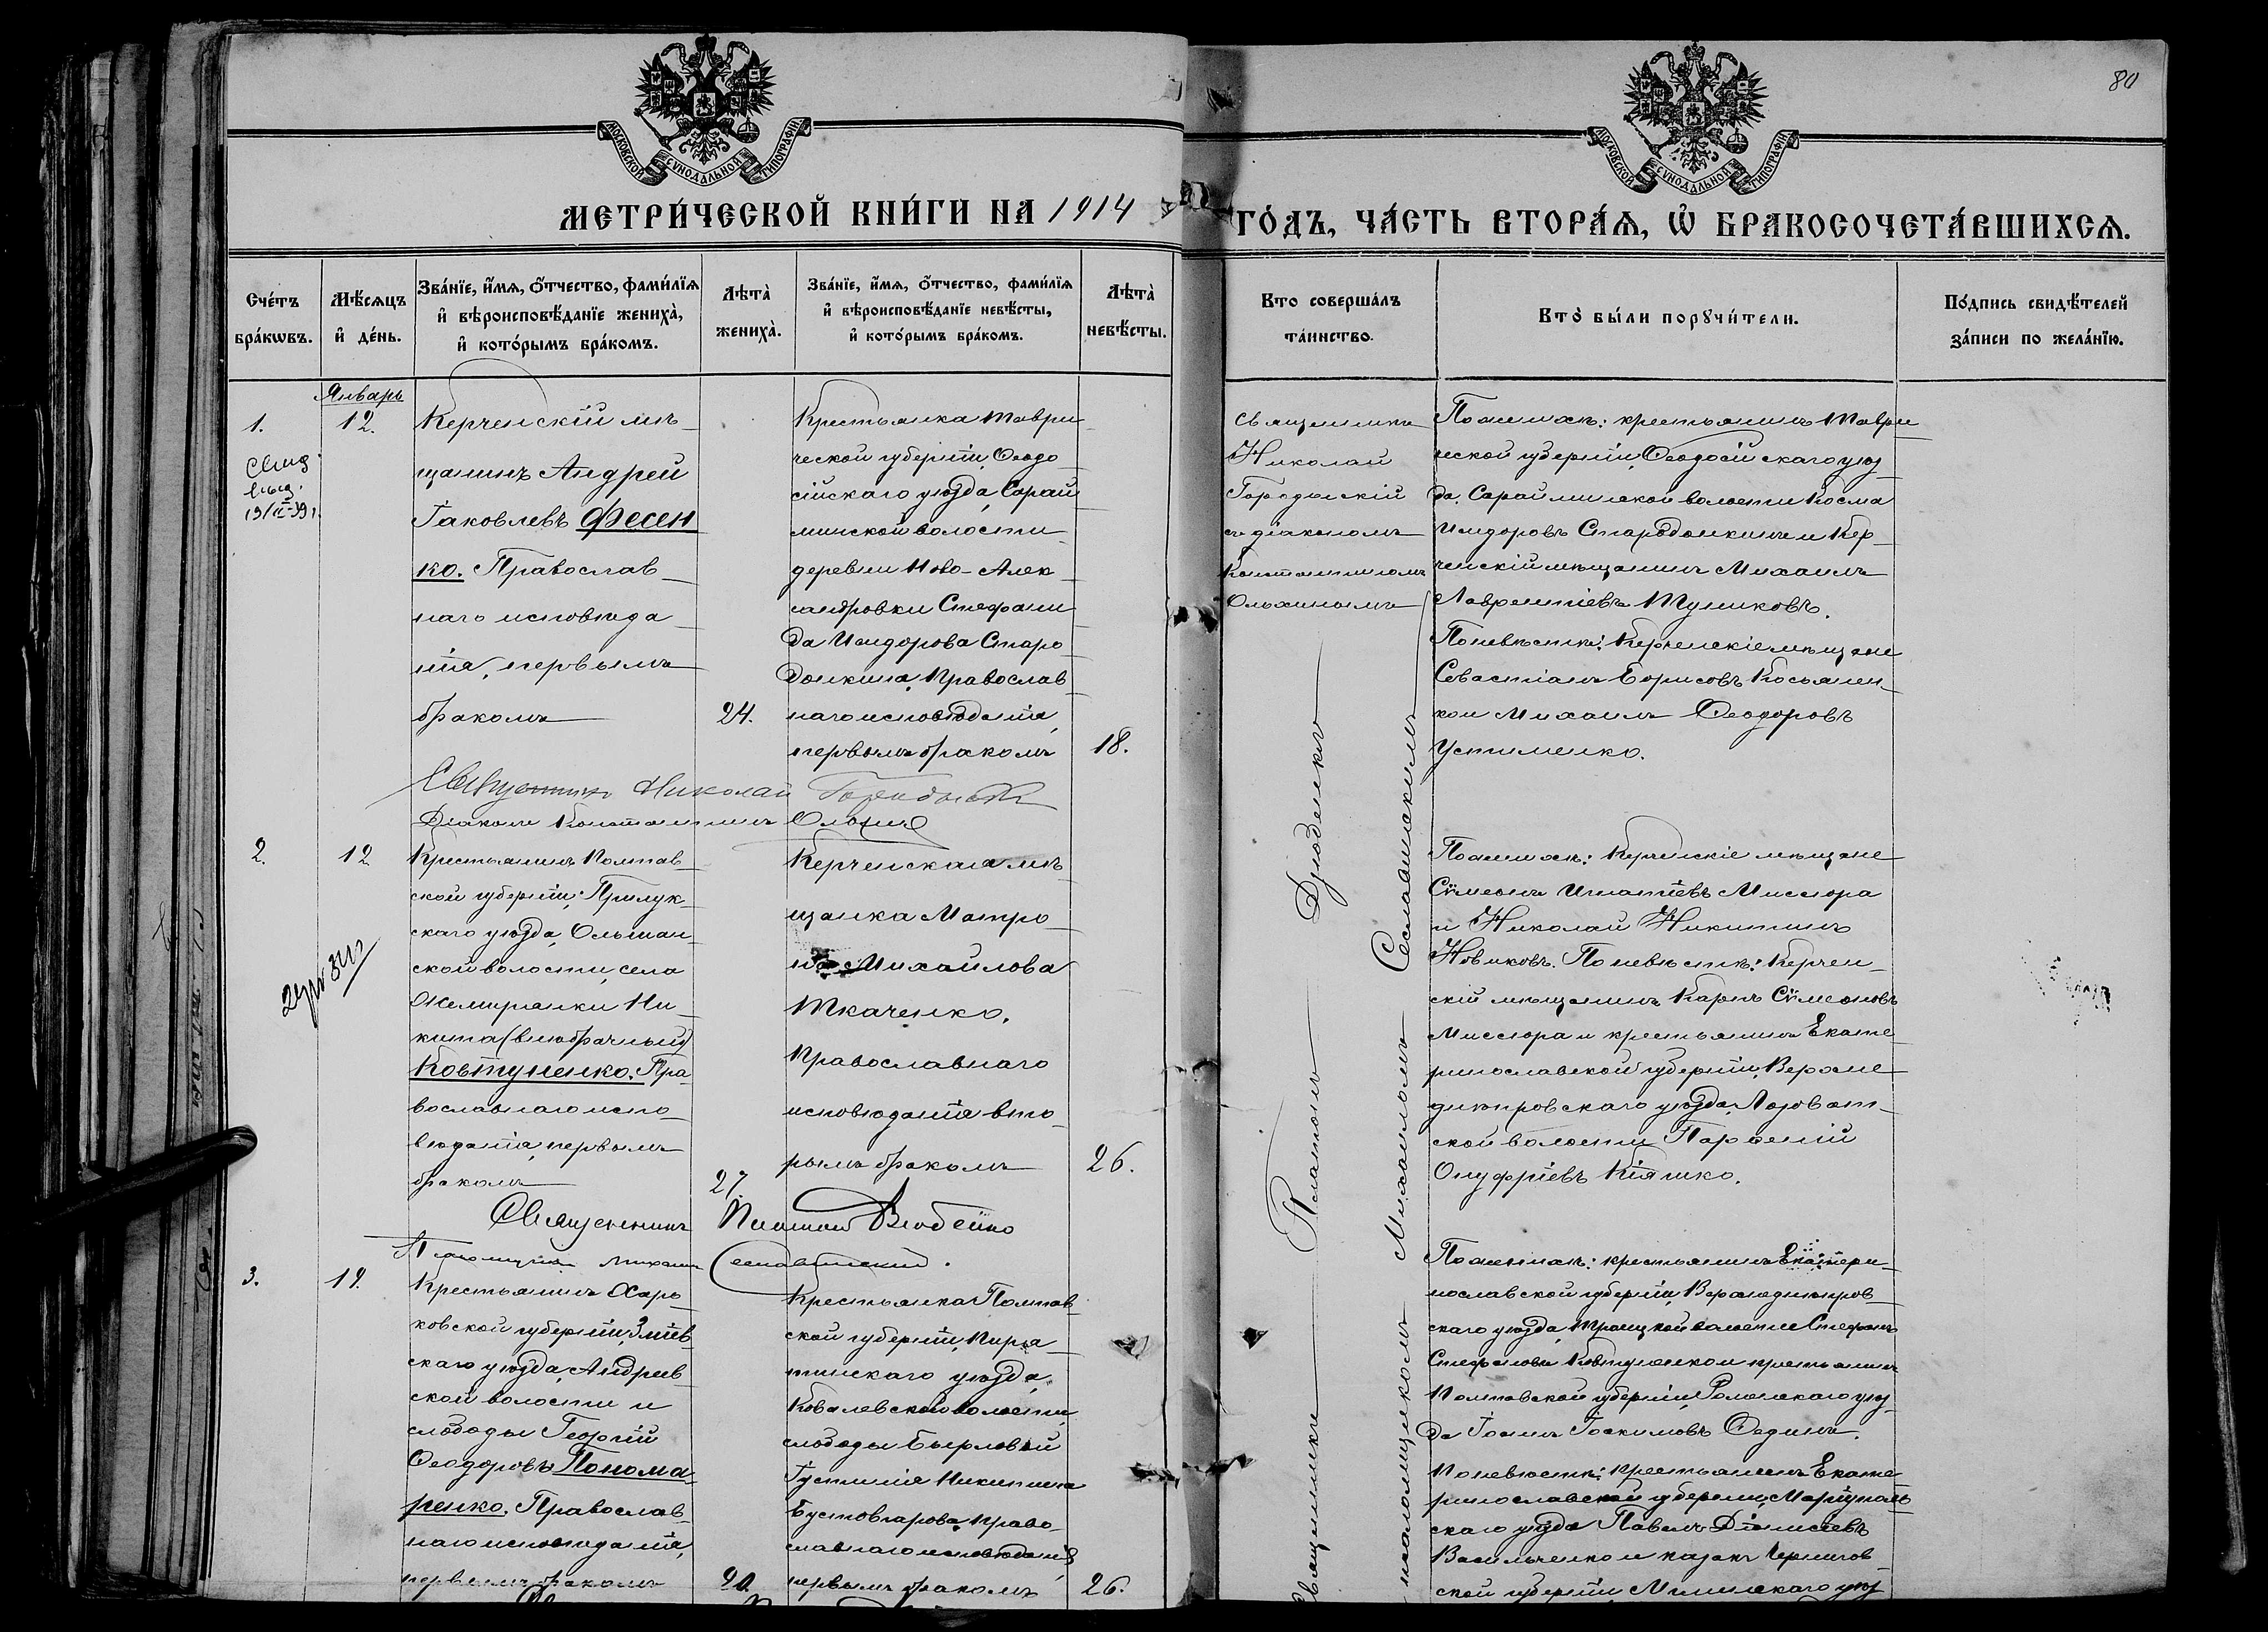 80
МОСКОВСКОЙ СѴНОДАЛЬНОЙ ТИПОГРАФІИ
МОСКОВСКОЙ СѴНОДАЛЬНОЙ ТИПОГРАФІИ
МЕТРИ́ЧЕСКОЙ КНИ́ГИ НА 1914
ГО́ДЪ, ЧА́СТЬ ВТОРА́Ѧ, Ѽ БРАКОСОЧЕТА́ВШИХСѦ.
Сче́тъ
бра́кѡвъ.
Мѣ́сѧцъ
и҆ де́нь.
Зва́нїе, и҆́мѧ, ѻ҆́тчество, фами́лїѧ
и҆ вѣроисповѣ́данїе жениха̀,
и҆ кото́рымъ бра́комъ.
Лѣта̀
жениха̀.
Зва́нїе, и҆́мѧ, ѻ҆́тчество, фами́лїѧ
и҆ вѣроисповѣ́данїе невѣ́сты,
и҆ кото́рымъ бра́комъ.
Лѣта̀
невѣ́сты.
Кто соверша́лъ
та́инство.
Кто̀ бы́ли порꙋчи́тели.
По́дпись свидѣ́телей
за́писи по жела́нїю.
Январь
1.
12.
Свид
выд.
Керченскій мѣ-
щанинъ Андрей
Іаковлевъ Фесен
ко. Православ-
наго исповѣда-
нія, первымъ
бракомъ
24.
Крестьянка Таври-
ческой губерніи, Ѳеодо-
сійскаго уѣзда, Сарай
минской волости
деревни Ново-Алек-
сандровки Стефани
да Исидорова Старо-
донкина, Православ-
наго исповѣданія,
первымъ бракомъ
18.
Священникъ
Николай
Городынскій
съ діакономъ
Константиномъ
Ольхинымъ
По женихѣ: крестьянинъ Таври-
ческой губерніи, Ѳеодосійскаго уѣз-
да, Сарайминской волости Косма
Исидоровъ Стародонкинъ и Кер-
ченскій мѣщанинъ Михаилъ
Лаврентіевъ Туликовъ.
По невѣстѣ: Керченскіе мѣщане
Севастіанъ Борисовъ Косьянен-
ко и Михаилъ Ѳеодоровъ
Устименко.
Священникъ Николай Городынскій
Діаконъ Константинъ Ольхинъ
2.
12
Крестьянинъ Полтав-
ской губерніи, Прилук-
скаго уѣзда, Ольшан-
ской волости, села
Ни-
кита (внѣбрачный)
Ковтуненко. Пра-
вославнаго испо-
вѣданія, первымъ
бракомъ
27.
Керченская мѣ-
щанка Матро-
на Михайлова
Ткаченко,
Православнаго
исповѣданія вто-
рымъ бракомъ
26.
По женихѣ: Керченскіе мѣщане
Сѵмеонъ Игнатіевъ Мисюра
и Николай Никитинъ
Новиковъ. По невѣстѣ: Керчен-
скій мѣщанинъ Карпъ Сѵмеоновъ
Мисюра и крестьянинъ Екате-
ринославской губерніи, Верхне-
днѣпровскаго уѣзда, Лозоват-
ской волости Парѳеній
Онуфріевъ Кіяшко.
Священникъ Платонъ
Псаломщикъ Михаилъ Сеславинскій.
3.
19.
Крестьянинъ Харь-
ковской губерніи, Зміев-
скаго уѣзда, Андреев-
ской волости и
слободы Георгій
Ѳеодоровъ Понома-
ренко. Православ-
наго исповѣданія,
первымъ бракомъ
Крестьянка Полтав-
ской губерніи, Пиря-
тинскаго уѣзда,
Ковалевской волости,
слободы
Іустинія Никитина
Право-
славнаго исповѣданія,
первымъ бракомъ
26.
Священникъ Платонъ
псаломщикомъ Михаиломъ
По женихѣ: крестьянинъ Екатери-
нославской губерніи, Верхнеднѣпров-
скаго уѣзда, Троицкой волости Стефанъ
Стефановъ Ковтуненко и крестьянинъ
Полтавской губерніи, Роменскаго уѣз-
да Іоаннъ Іоакимовъ Ѳединъ.
По невѣстѣ: крестьянинъ Екате-
ринославской губерніи, Маріуполь-
скаго уѣзда Павелъ Діонисіевъ
Васильченко и казакъ Чернигов-
ской губерніи, уѣз-